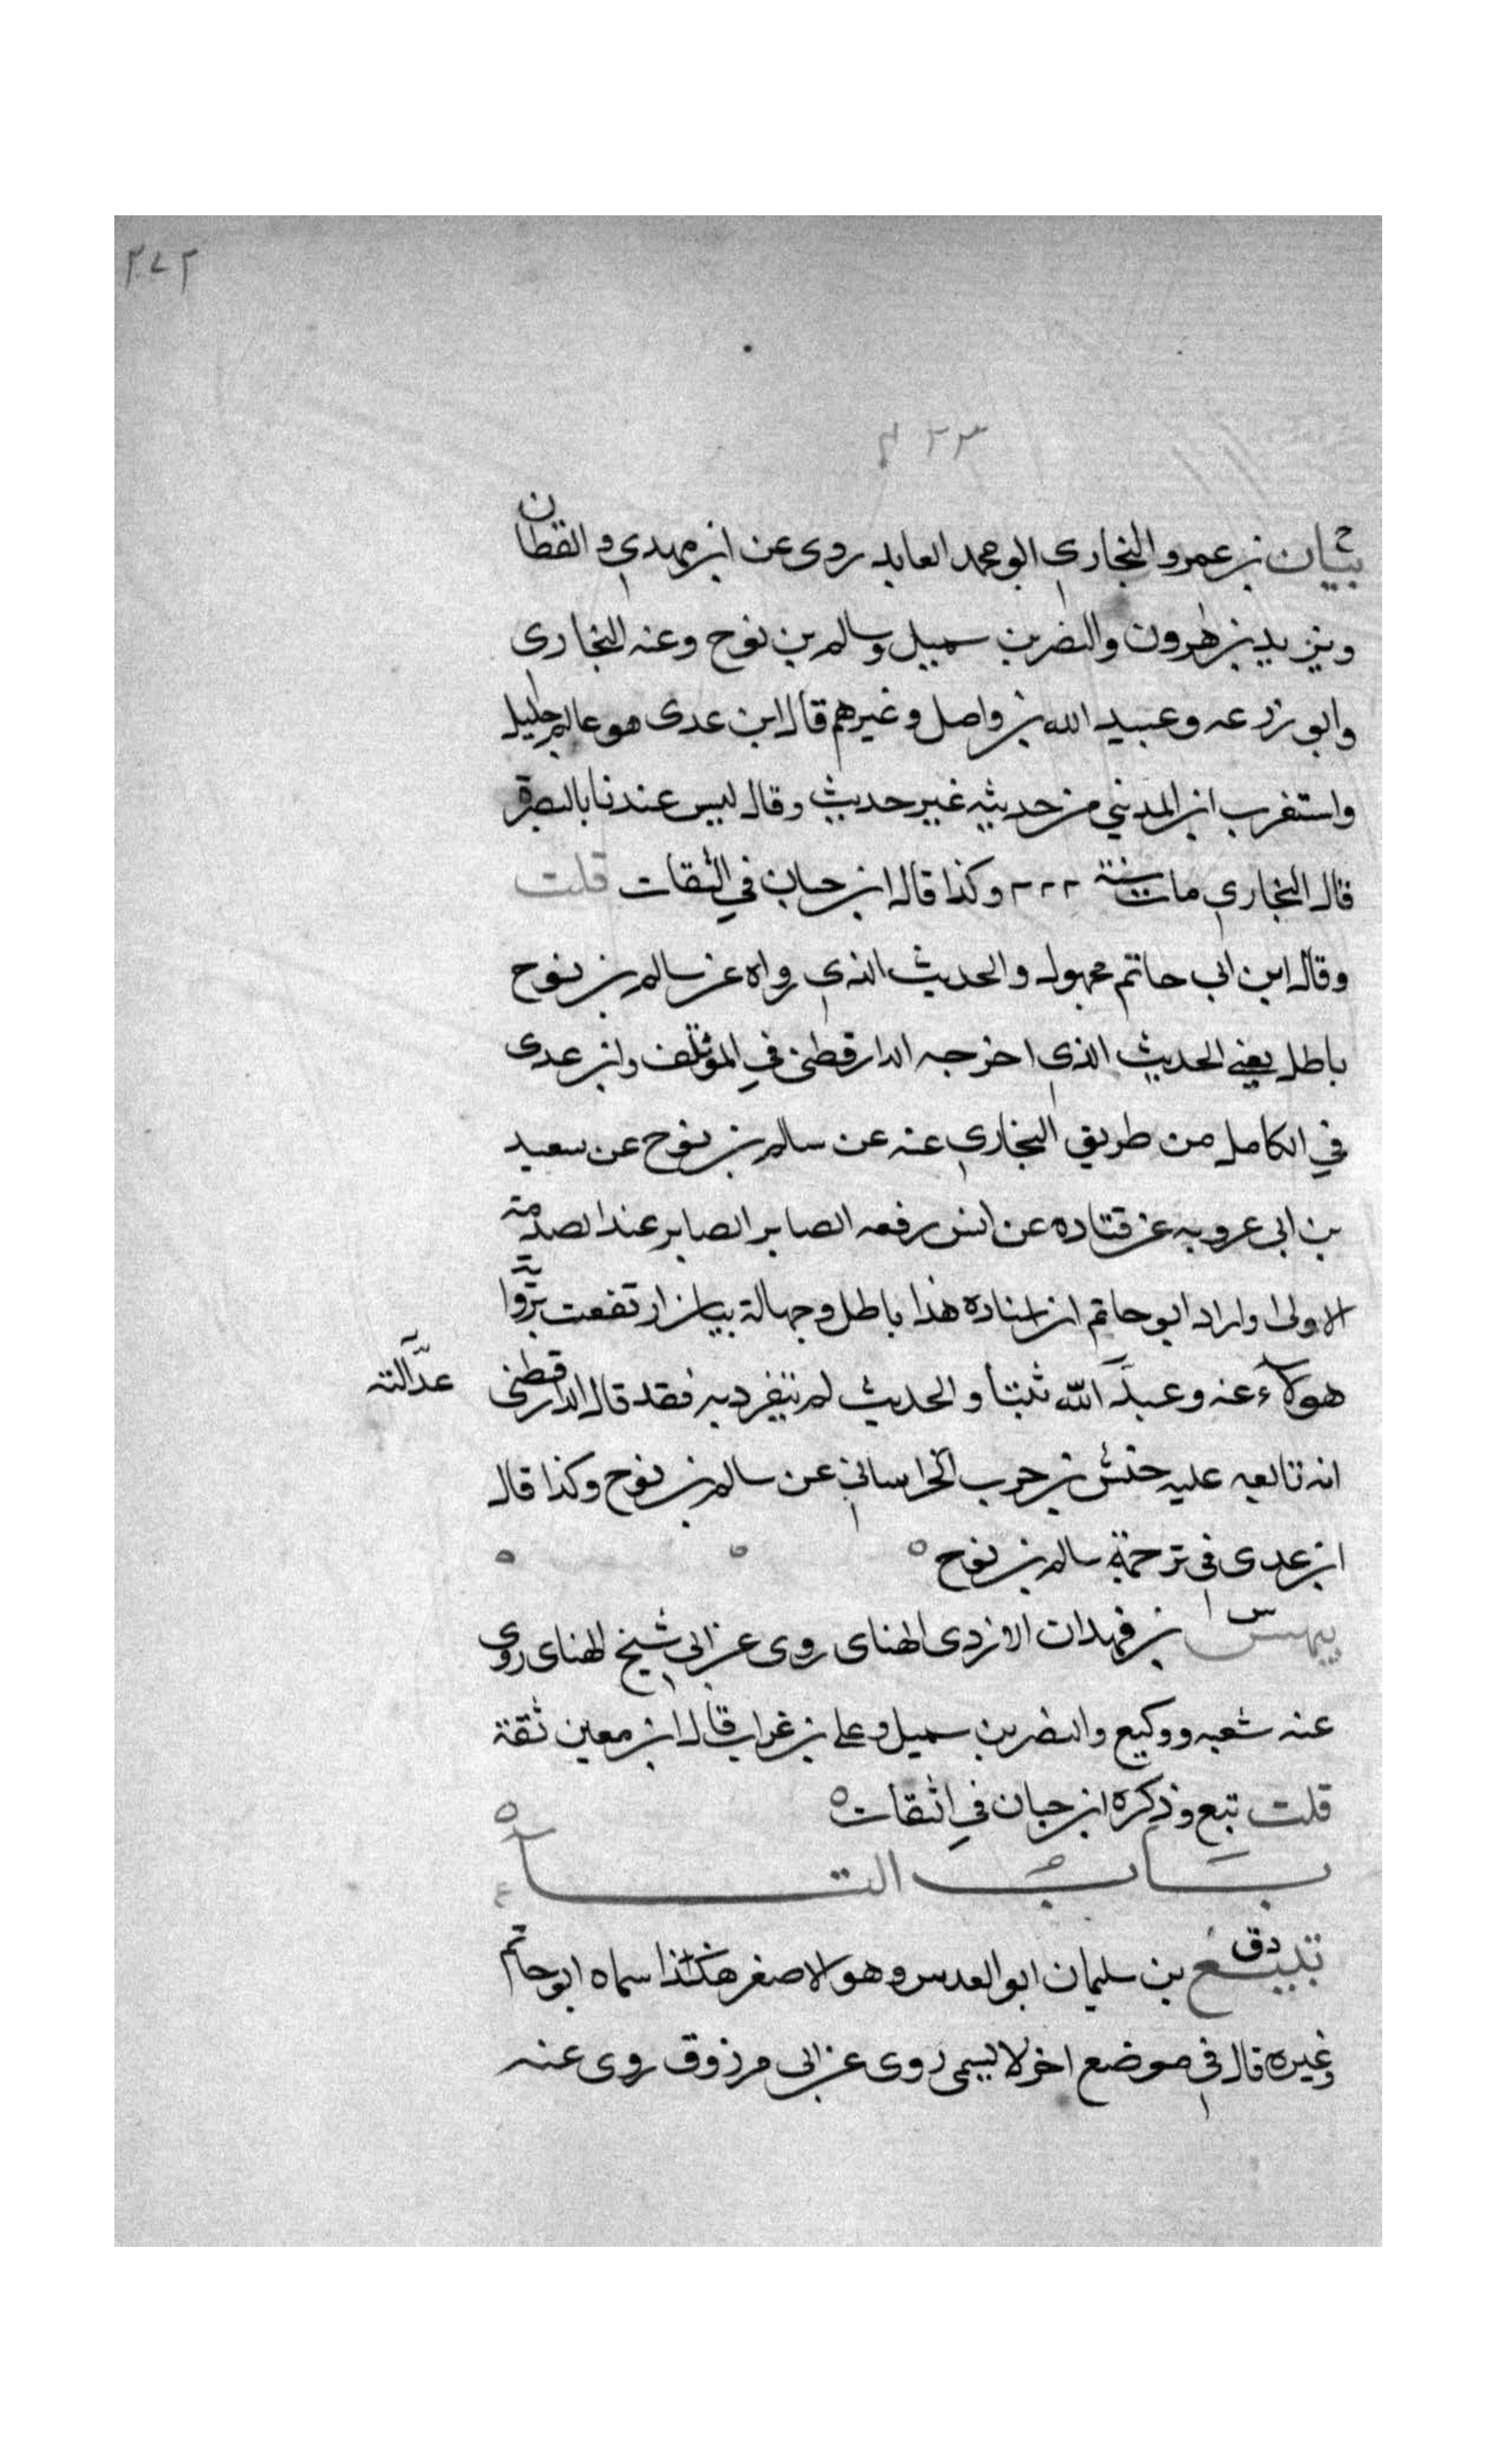 ٢٧٢
٢٢٣
بيان بن عمرو البخاري ابو محمد العابد روى عن ابن مهدي والقطان
ويزيد بن هرون والنضر بن سميل وسالم بن نوح وعنه البخارى
وابو زرعه وعبيد الله بن واصل وغيرهم قال ابن عدى هو عالم جليل
واستغرب ابن المديني من حديثه غير حديث وقال ليس عندنا بالبصرة
قال البخاري مات سنة ٢٢٢ وكذا قال ابن حبان في الثقات قلت
وقال ابن ابى حاتم مجهول والحديث الذي رواه عن سالم بن نوح
باطل يعني الحديث الذي اخرجه الدارقطنى في المؤتلف وابن عدى
في الكامل من طريق البخاري عنه عن سالم بن نوح عن سعيد
بن ابى عروبه عن قتاده عن انس رفعه الصابر الصابر عند الصدمة
الاولى واراد ابو حاتم ان اسناده هذا باطل وجهالة بيان ارتفعت برواية
هولاء عنه وعبد الله ثبتا والحديث لم يتفرد به فقد قال الدارقطنى
عدالته
انه تابعه عليه حنش بن حرب الخراساني عن سالم بن نوح وكذا قال
ابن عدى فى ترجمة سالم بن نوح
بيهس س بن فهدان الازدى الهناى روى عن ابي شيخ الهناى روى
عنه شعبه ووكيع والنضر بن سميل وعلى بن غراب قال ابن معين ثقة
قلت تبع وذكره ابن حبان في الثقات
باب التاء
تبيع دق بن سليمان ابو العدبس وهو الاصغر هكذا سماه ابو حاتم
وغيره قال في موضع اخر لا يسمى روى عن ابى مرزوق روى عنه